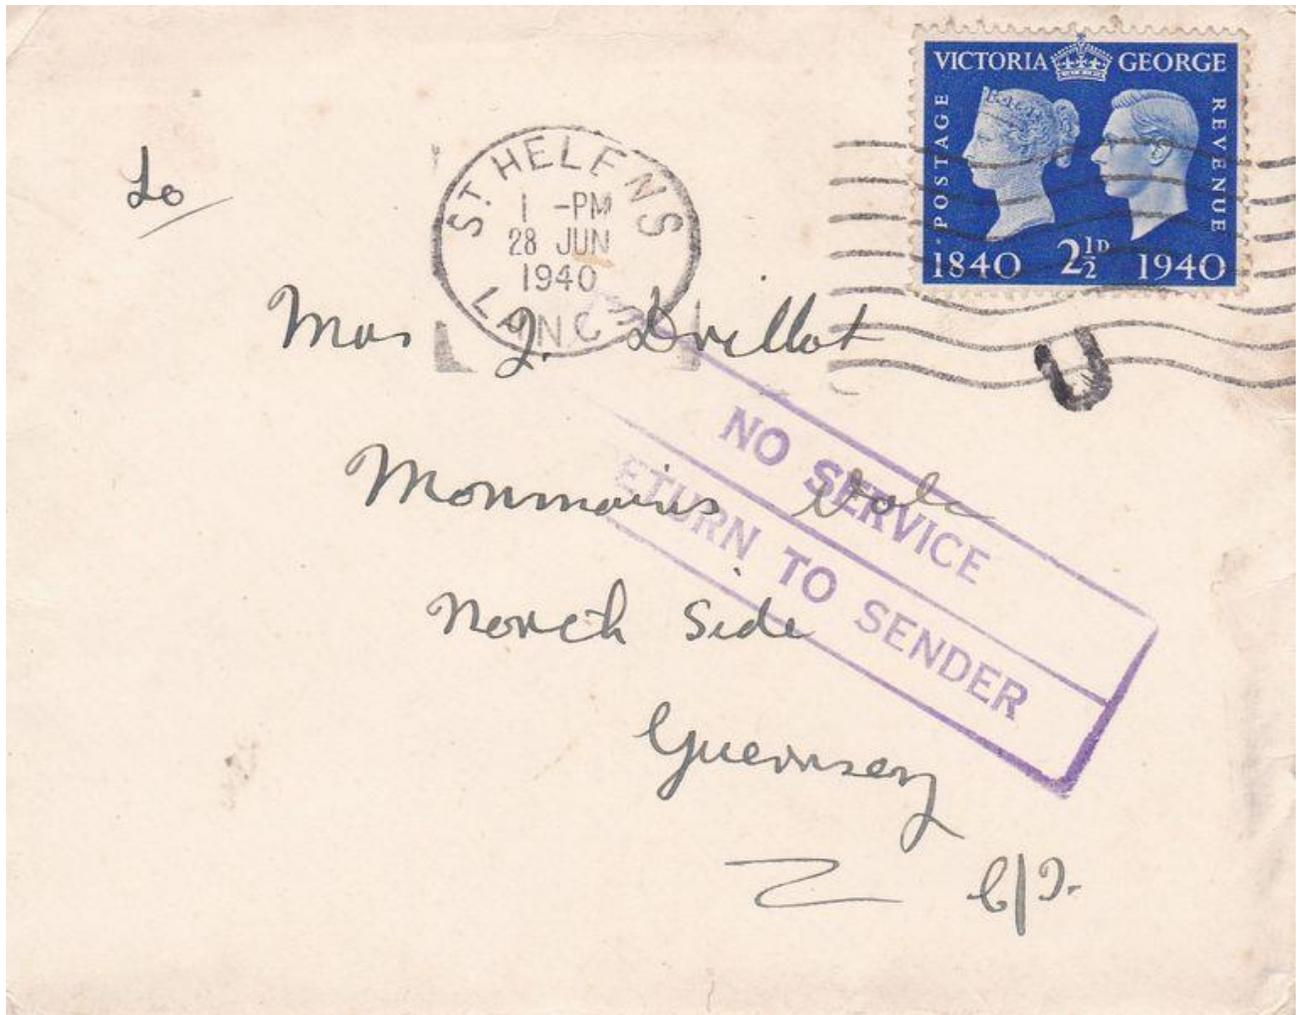 VICTORIA GEORGE
POSTAGE
REVENUE
1840 2½D 1940
ST HELENS
1 -PM
28 JUN
1940
LANCS
To
Mrs J. Drillot
Monmains Vale
North Side
Guernsey
C/I.
U
NO SERVICE
ETURN TO SENDER